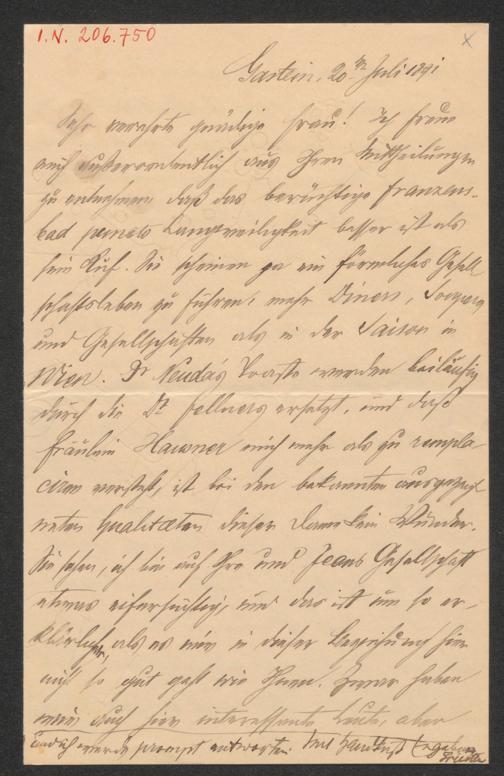 I. N. 206.750
Gastein, 20ten Juli 1891
Sehr verehrte gnädige Frau! Ich freue
mich außerordentlich aus Ihren Mittheilungen
zu entnehmen daß das berüchtigte Franzens-
bad Langweiligkeit besser ist als
sein Ruf. Sie scheinen ja ein förmliches Gesell
schaftsleben zu führen, mehr Diners, Soupers
und Gesellschaften als in der Saison in
Wien. Dr Neuda's Toaste werden beiläufig
durch die Dr Fellners ersetzt, und daß
Fräulein Hawner mich mehr als zu rempla
ciren versteht, ist bei den bekannten ausgezeich
neten Qualitæten dieser Dame kein Wunder.
Sie sehen, ich bin auf Ihre und Jeans Gesellschaft
etwas eifersüchtig, und das ist um so er-
klärlicher, als es mir in dieser Beziehung hier
nicht so gut geht wie Ihnen. Zwar haben
wir auch hier interessante Leute, aber
und ich werde prompt antworten. Mit Handkuß Ergebenst